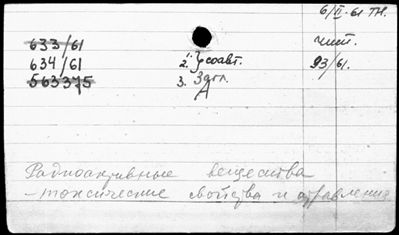 6/II-61 ТН.
633/61
634/61 2. 3 соавт. 93/61.
563375 3. Загл.
Радиоактивные вещества
– токсические свойства и отравления